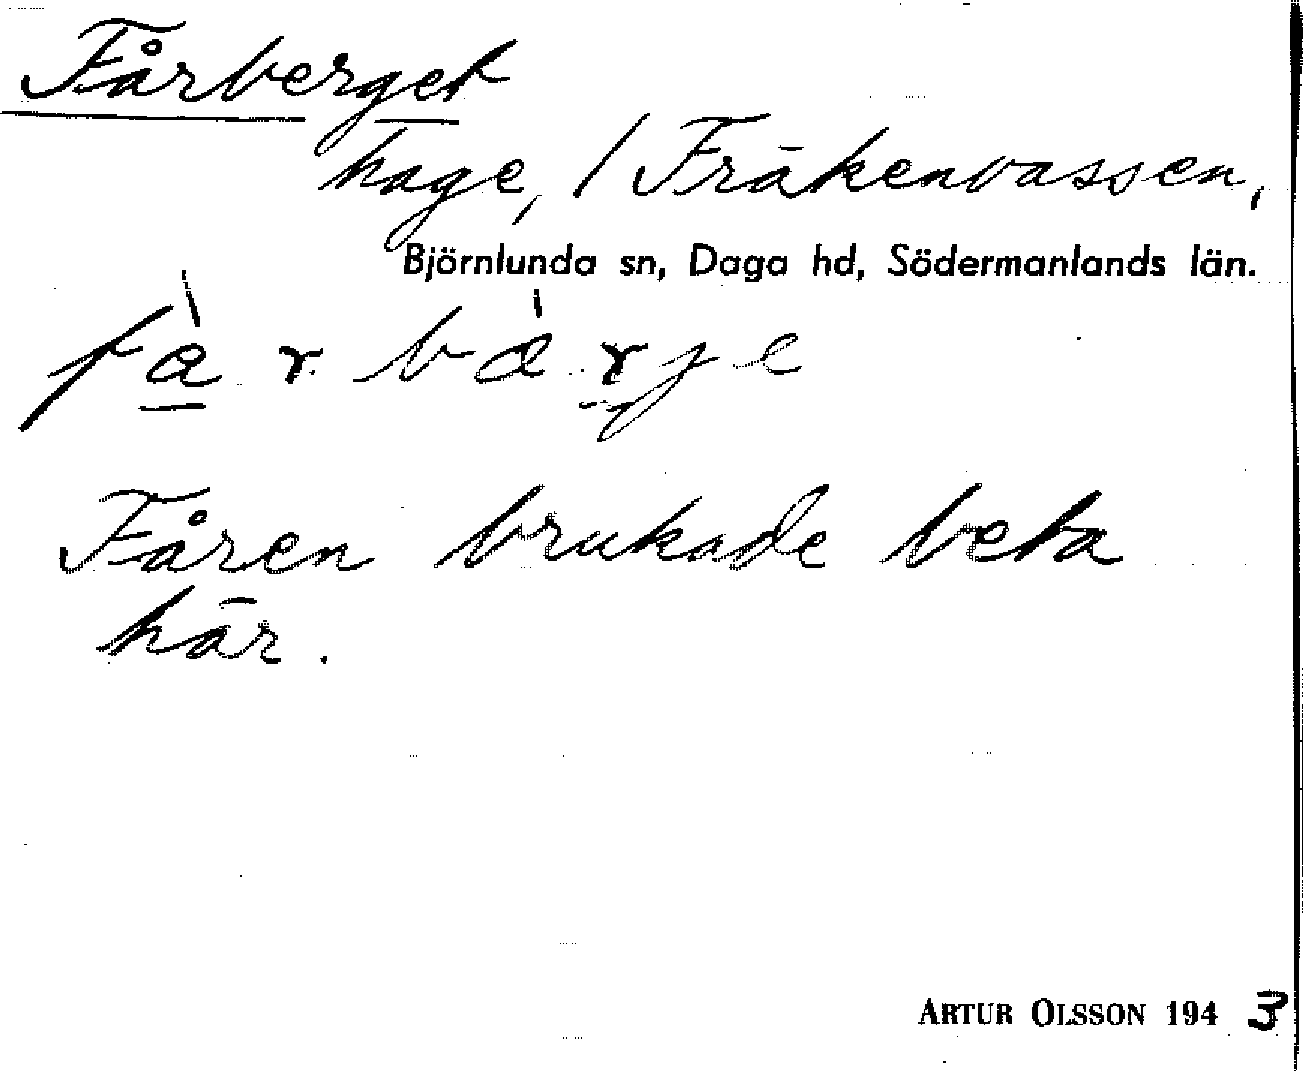 Fårberget
hage, / Fräkenvassen,
Björnlunda sn, Daga hd, Södermanlands län.
Fåren brukade beta
här.
ARTUR OLSSON 1943